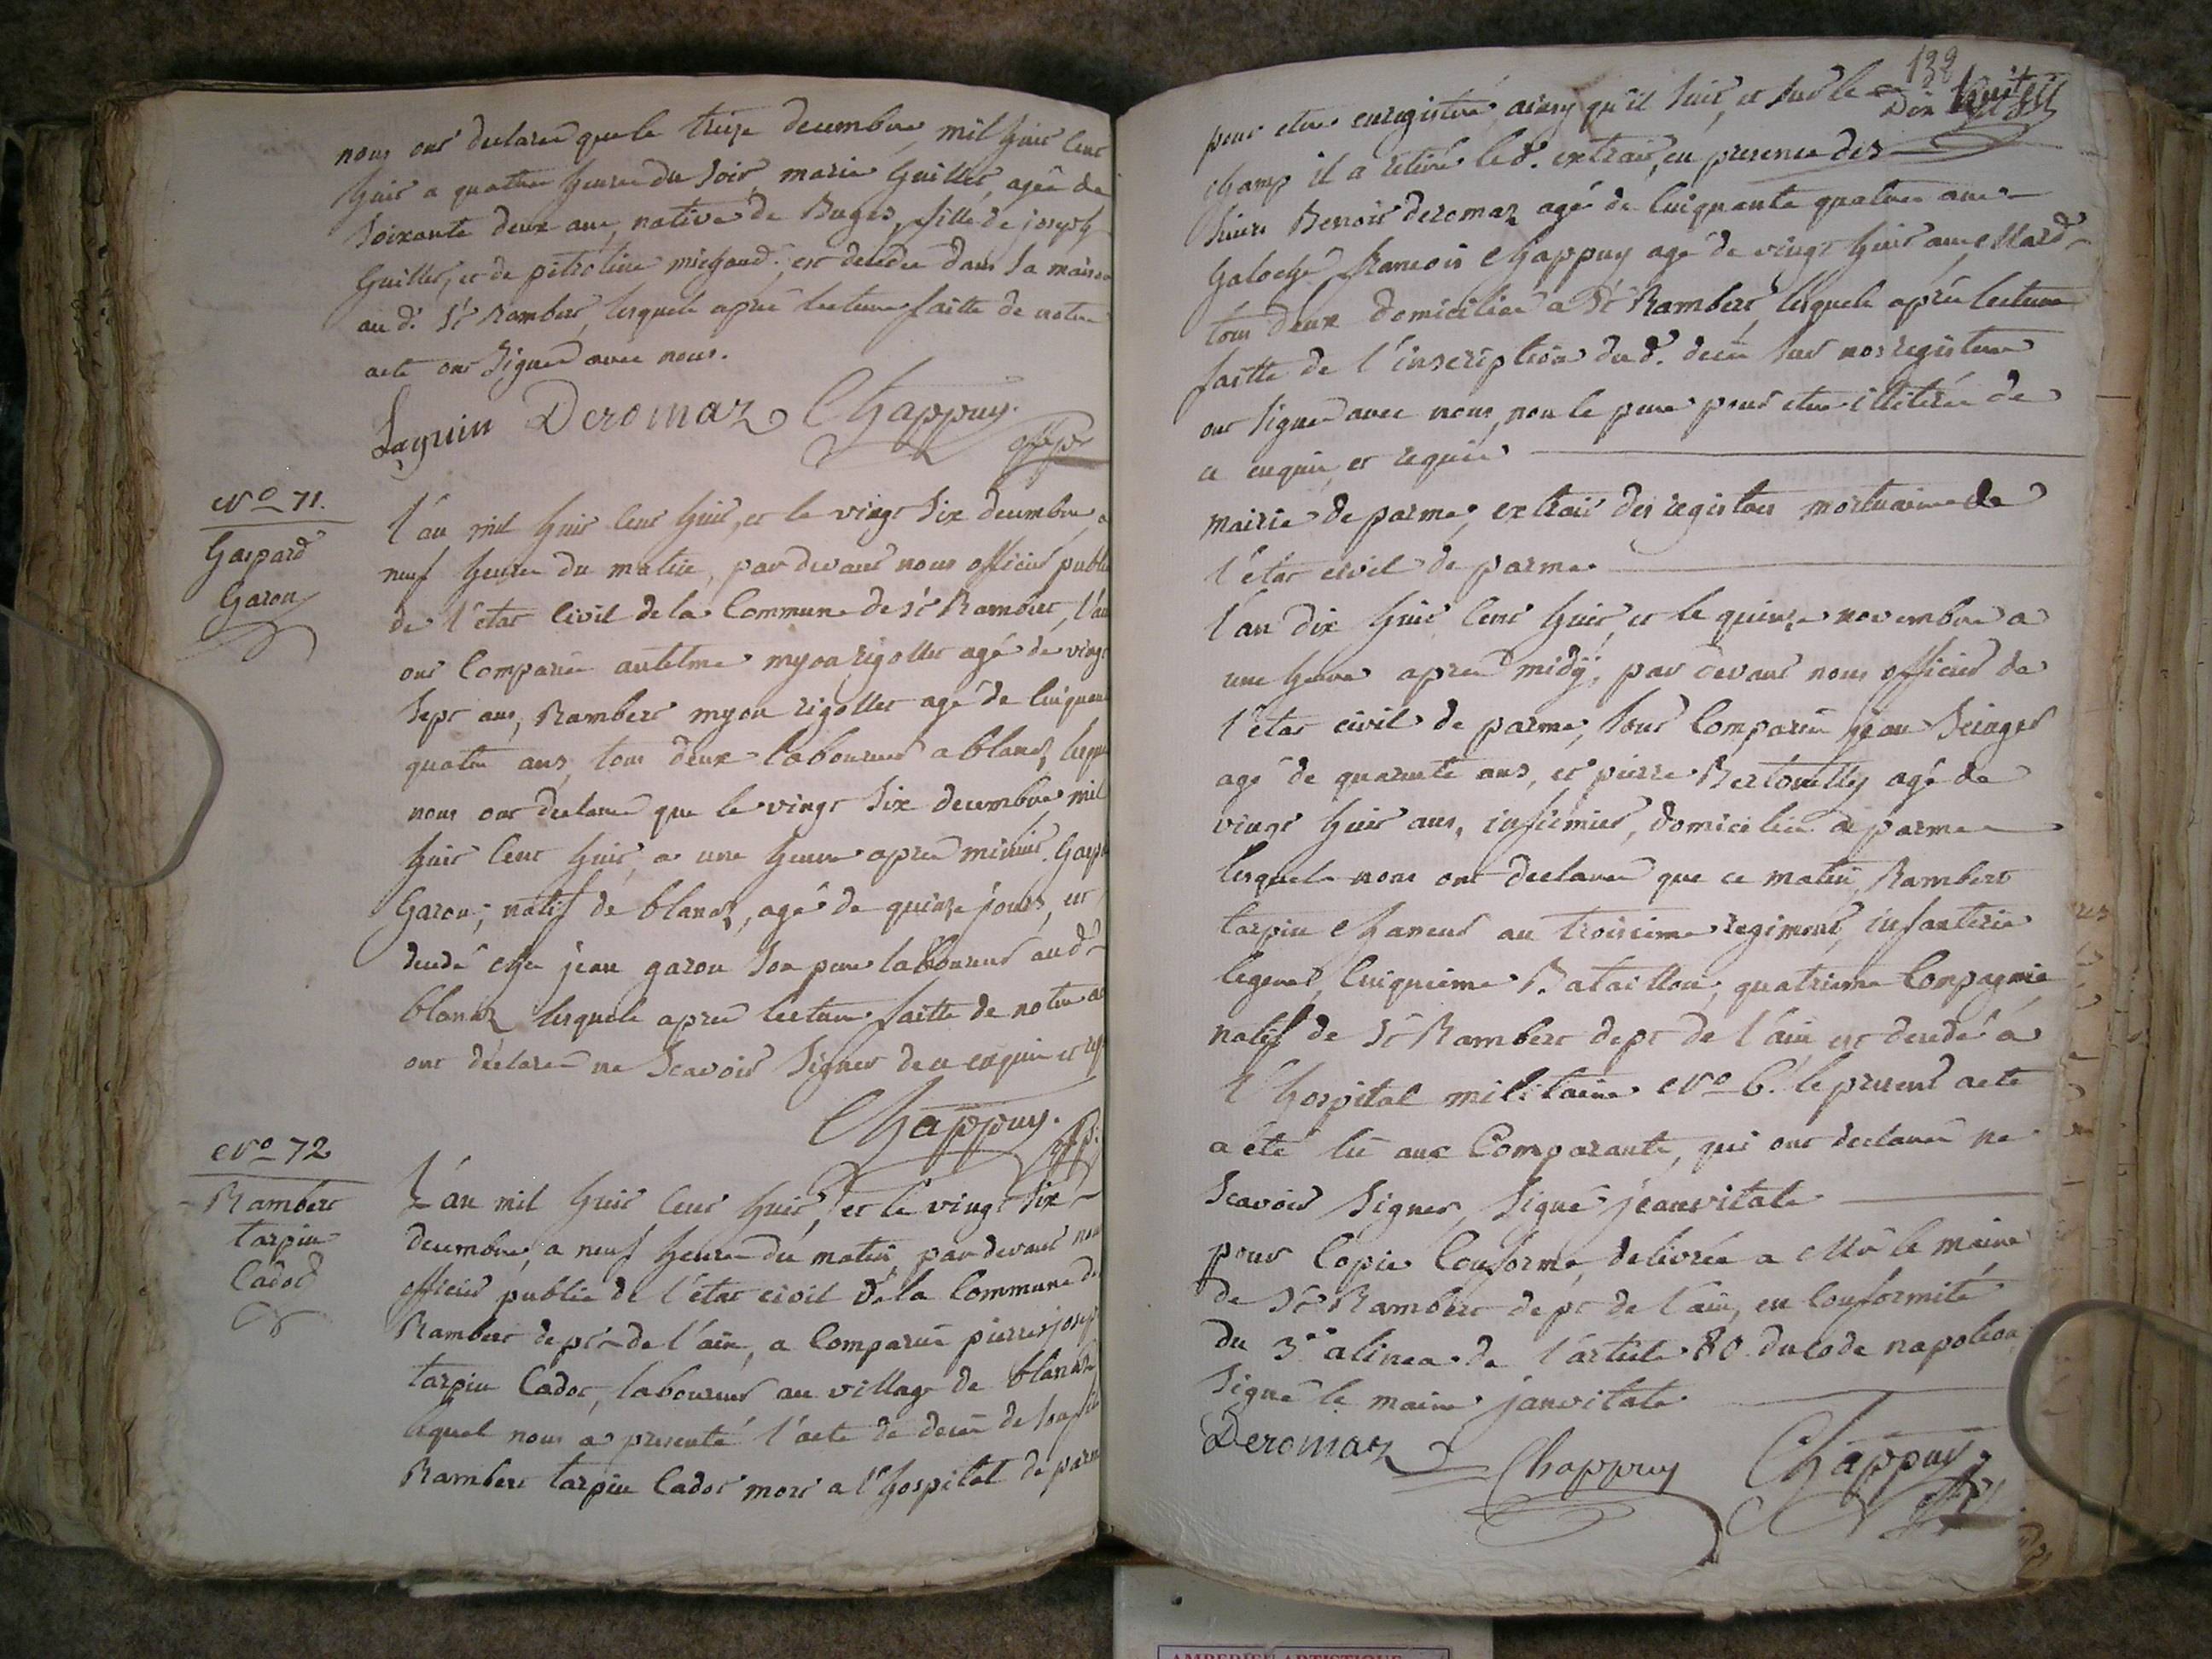 nous ont declaré que le treize decembre mil huit cent
huit a quatre heures du soir, marie Guillet, agée de
soixante deux ans, native de Buges, fille de joseph
Guillet, et de petroline michaud, est decedée dans sa maison
au d. St Rambert, lesquels après lecture faitte de notre
acte ont signé avec nous.
Laguin Deromaz Chappuy.
offp.
No 71.
Gaspard
Garon
L'an mil huit cent huit, et le vingt six decembre, a
neuf heures du matin, par devant nous officier public
de l'état civil de la Commune de St Rambert, l'ain
ont Comparu antelme myon rigollet agé de vingt
sept ans, Rambert myon rigollet agé de cinquante
quatre ans, tous deux laboureurs a blanaz, lesquels
nous ont declaré que le vingt six decembre mil
huit cent huit, a une heure après minuit, Gaspard
Garon, natif de blanaz, agé de quinze jours, est
decedé chez jean garon son pere laboureur aud.
blanaz lesquels après lecture faitte de notre acte
ont declaré ne scavoir signer de ce enquis et req
Chappuy.
offp.
No 72
Rambert
tarpin
Cadot
L'an mil huit cent huit, et le vingt six
decembre, a neuf heures du matin, par devant nous
officier public de l'état civil de la Commune de
Rambert dept de l'ain, a Comparu pierre joseph
tarpin Cadot, laboureur au village de blanaz
lequel nous a presenté l'acte de decès de son fils
Rambert tarpin Cadot mort a l'hospital de parme
138
Dix huit
pour etre enregistré ainsy qu'il suit, et sur le
champ il a retiré led. extrait, en presence des
sieurs Benoit deromaz agé de cinquante quatre ans
Galoché francois Chappuy agé de vingt huit ans, Mard
tous deux domiciliés a St Rambert, lesquels après lecture
faitte de l'inscription dud. decès sur nos registres
ont signé avec nous, non le pere pour etre illitéré de
ce enquis, et requis
Mairie de parme, extrait des registres mortuaires de
l'état civil de parme
L'an dix huit cent huit, et le quinze novembre a
une heure après midÿ, par devant nous officier de
l'état civil de parme, sont Comparus jean Seinger
agé de quarante ans, et pierre Bertouilly agé de
vingt huit ans, infirmier, domiciliés a parme
lesquels nous ont declaré que ce matin, Rambert
tarpin Chaneur au troisieme regiment, infanterie
legere, Cinquieme Bataillon, quatrieme Compagnie
natif de St Rambert dept de l'ain est decedé a
l'hospital militaire No 6. le present acte
a eté lû aux Comparants, qui ont declaré ne
scavoir signer, signé jeanvitale
pour Copie Conforme, delivrée a Mr le maire
de St Rambert dept de l'ain, en Conformité
du 3e alinea de l'article 80 du code napoleon,
signé le maire janvitale
Deromaz Chappuy Chappuy.
offp.
AMBERIEU ARTISTIQUE